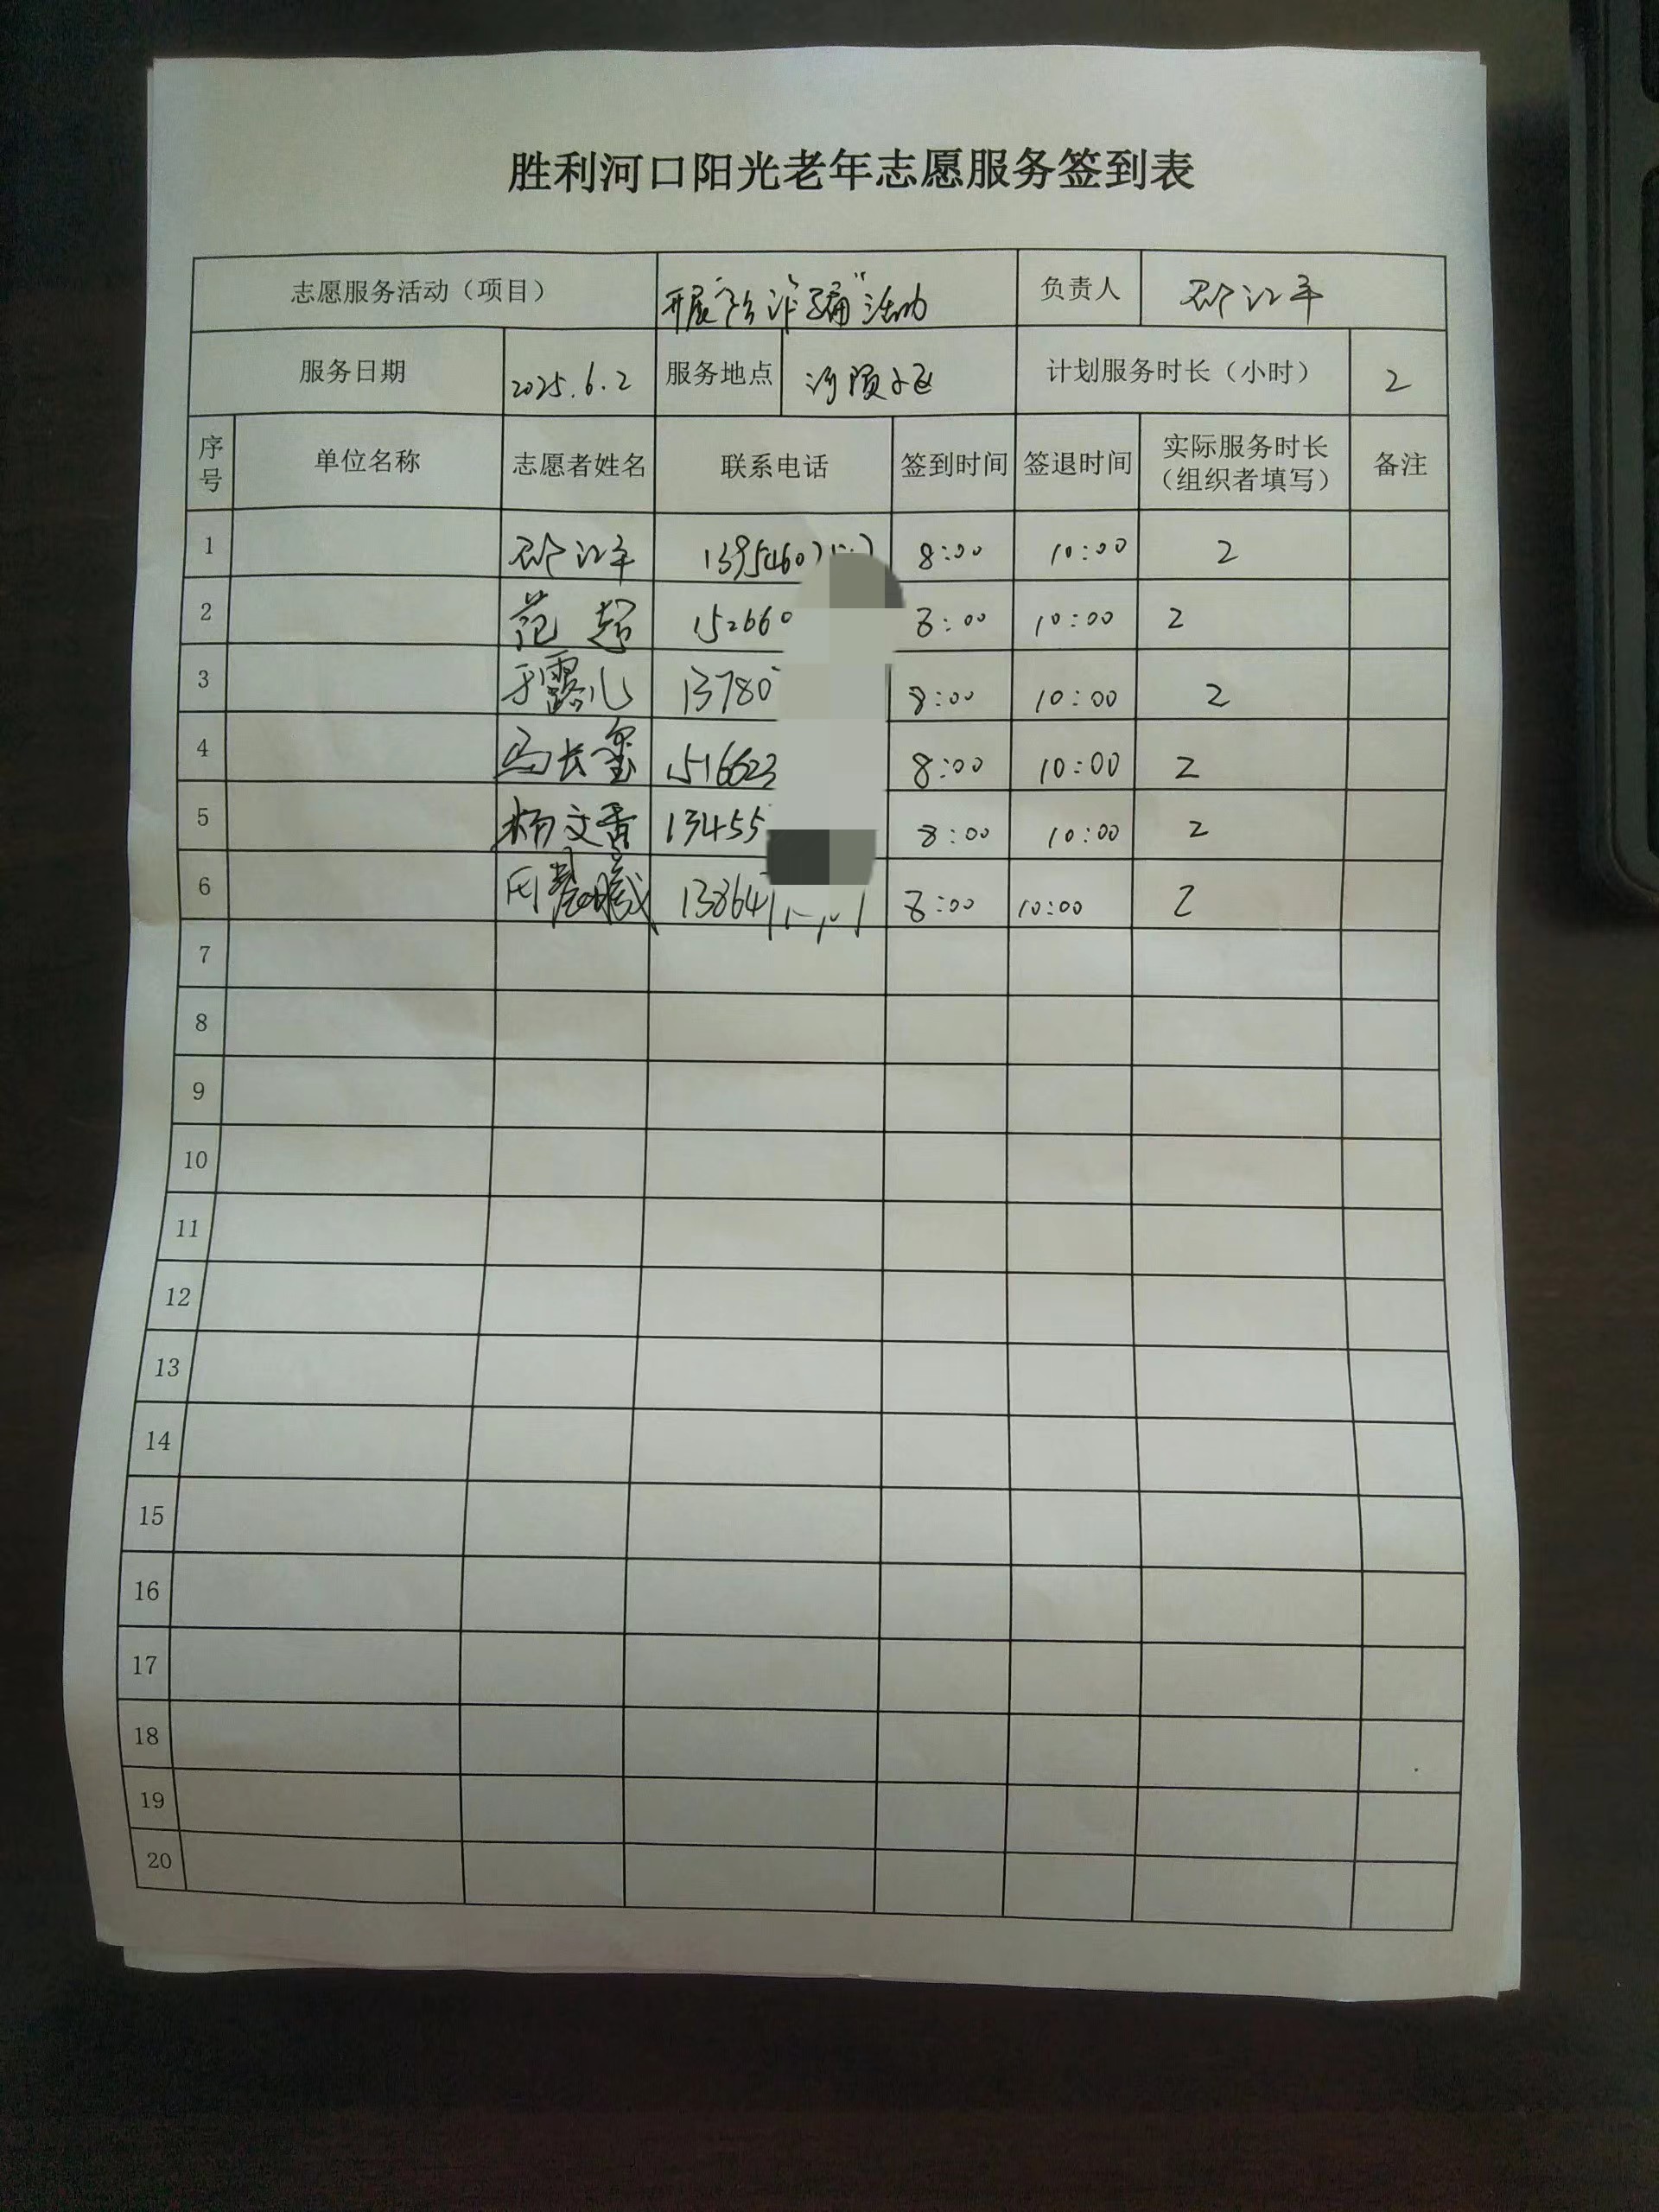 胜利河口阳光老年志愿服务签到表
志愿服务活动（项目） 开展“防诈骗”活动 负责人
服务日期 2025.6.2 服务地点 河滨小区 计划服务时长（小时） 2
序号 单位名称 志愿者姓名 联系电话 签到时间 签退时间 实际服务时长（组织者填写） 备注
1 1395460 8:00 10:00 2
2 范超 152660 8:00 10:00 2
3 于露儿 13780 8:00 10:00 2
4 马长玺 1516623 8:00 10:00 2
5 杨文香 13455 8:00 10:00 2
6 13864 8:00 10:00 2
7
8
9
10
11
12
13
14
15
16
17
18
19
20